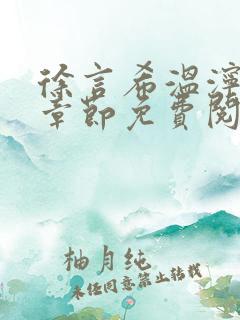 徐言希温泞
章节免费阅
柚月纯
未经同意禁止转载